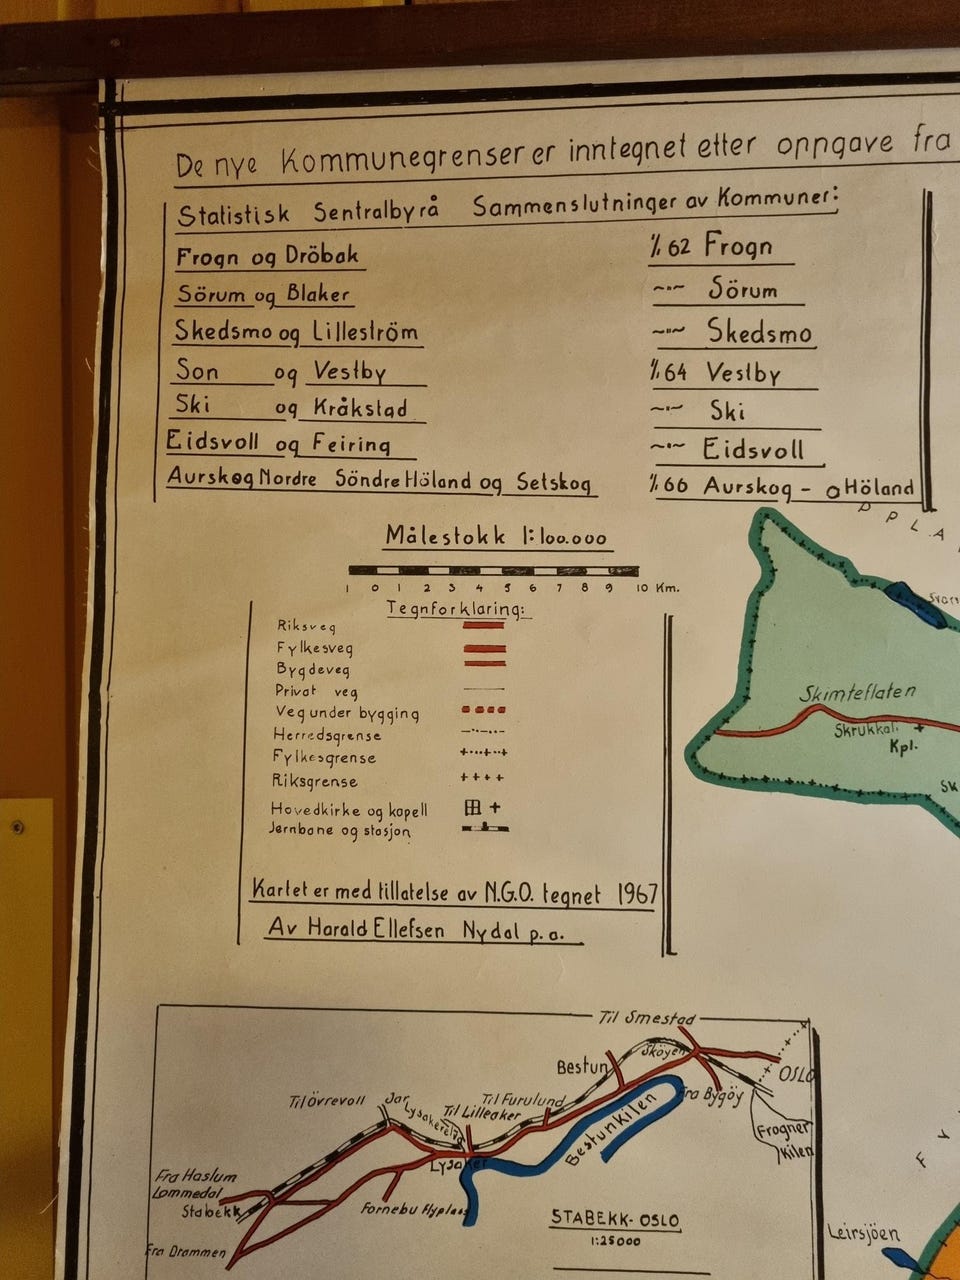 De nye Kommunegrenser er inntegnet etter oppgave fra
Statistisk Sentralbyrå Sammenslutninger av Kommuner:
Frogn og Dröbak 1/1 62 Frogn
Sörum og Blaker —"— Sörum
Skedsmo og Lilleström —"— Skedsmo
Son og Vestby 1/1 64 Vestby
Ski og Kråkstad —"— Ski
Eidsvoll og Feiring —"— Eidsvoll
Aurskog Nordre Söndre Höland og Setskog 1/1 66 Aurskog - Höland
O P P L A
Målestokk 1:100.000
1 0 1 2 3 4 5 6 7 8 9 10 Km.
Tegnforklaring:
Riksveg
Fylkesveg
Bygdeveg
Privat veg
Veg under bygging
Herredsgrense
Fylkesgrense
Riksgrense
Hovedkirke og kapell
Jernbane og stasjon
Skimteflaten
Skrukkeli
Kpl.
Sk
Kartet er med tillatelse av N.G.O. tegnet 1967
Av Harald Ellefsen Nydal p.a.
Til Smestad
Sköyen
Bestun
OSLO
Til övrevoll
Jar
Lysakerelva
Til Lilleaker
Til Furulund
Fra Bygöy
Frogner
Kilen
Bestunkilen
Lysaker
Fra Haslum
Lommedal
Stabekk
Fornebu flyplass
Fra Drammen
STABEKK-OSLO
1:25000
Leirsjöen
F Y